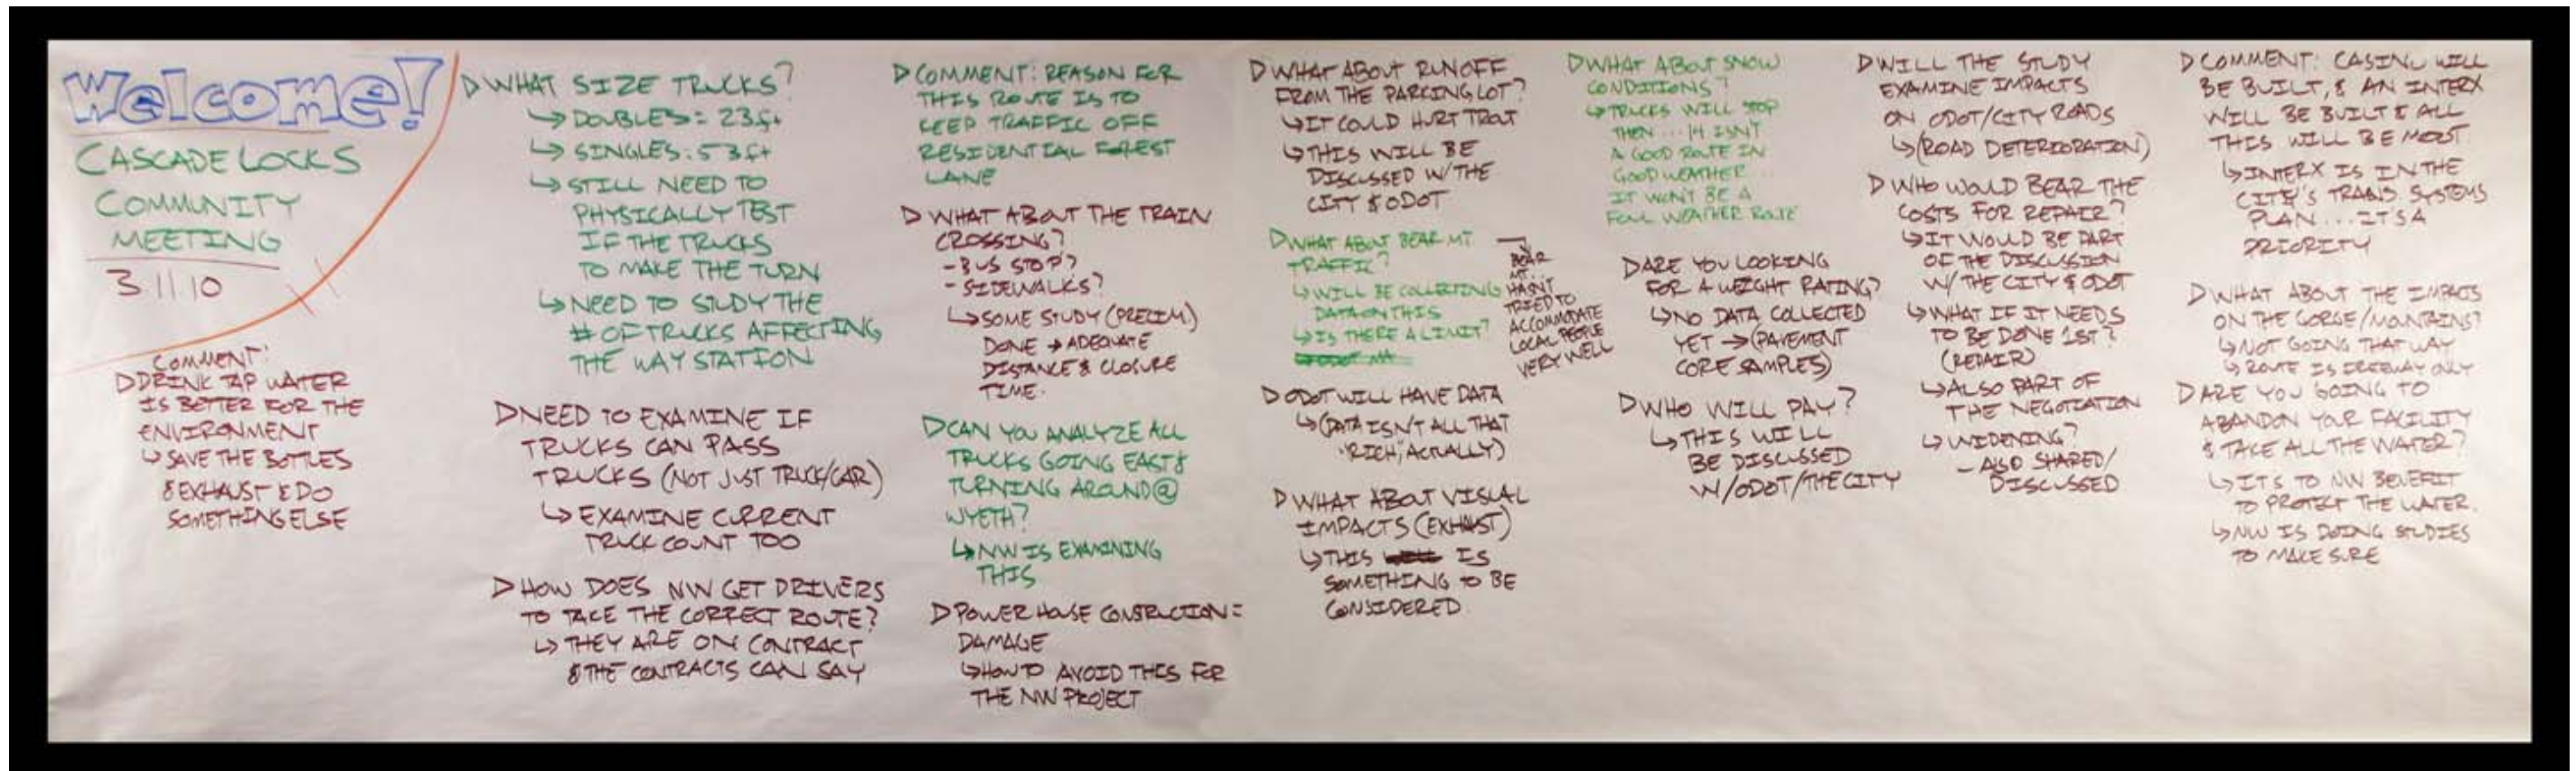 Welcome!
CASCADE LOCKS
COMMUNITY
MEETING
3.11.10
COMMENT:
▷ DRINK TAP WATER
IS BETTER FOR THE
ENVIRONMENT
↳ SAVE THE BOTTLES
& EXHAUST & DO
SOMETHING ELSE
▷ WHAT SIZE TRUCKS?
↳ DOUBLES = 23ft
↳ SINGLES: 53ft
↳ STILL NEED TO
PHYSICALLY TEST
IF THE TRUCKS
TO MAKE THE TURN
↳ NEED TO STUDY THE
# OF TRUCKS AFFECTING
THE WAY STATION
▷ NEED TO EXAMINE IF
TRUCKS CAN PASS
TRUCKS (NOT JUST TRUCK/CAR)
↳ EXAMINE CURRENT
TRUCK COUNT TOO
▷ HOW DOES NW GET DRIVERS
TO TAKE THE CORRECT ROUTE?
↳ THEY ARE ON CONTRACT
& THE CONTRACTS CAN SAY
▷ COMMENT: REASON FOR
THIS ROUTE IS TO
KEEP TRAFFIC OFF
RESIDENTIAL FOREST
LANE
▷ WHAT ABOUT THE TRAIN
CROSSING?
- BUS STOP?
- SIDEWALKS?
↳ SOME STUDY (PRELIM.)
DONE → ADEQUATE
DISTANCE & CLOSURE
TIME.
▷ CAN YOU ANALYZE ALL
TRUCKS GOING EAST &
TURNING AROUND @
WYETH?
↳ NW IS EXAMINING
THIS
▷ POWER HOUSE CONSTRUCTION =
DAMAGE
↳ HOW TO AVOID THIS FOR
THE NW PROJECT
▷ WHAT ABOUT RUNOFF
FROM THE PARKING LOT?
↳ IT COULD HURT TROUT
↳ THIS WILL BE
DISCUSSED W/ THE
CITY & ODOT
▷ WHAT ABOUT BEAR MT.
TRAFFIC?
↳ WILL BE COLLECTING
DATA ON THIS
↳ IS THERE A LIMIT?
BEAR
MT...
HASN'T
TRIED TO
ACCOMMODATE
LOCAL PEOPLE
VERY WELL
▷ ODOT WILL HAVE DATA
↳ (DATA ISN'T ALL THAT
"RICH", ACTUALLY)
▷ WHAT ABOUT VISUAL
IMPACTS (EXHAUST)
↳ THIS IS
SOMETHING TO BE
CONSIDERED
▷ WHAT ABOUT SNOW
CONDITIONS?
↳ TRUCKS WILL STOP
THEN... IT ISN'T
A GOOD ROUTE IN
GOOD WEATHER...
IT WON'T BE A
FOUL WEATHER ROUTE
▷ ARE YOU LOOKING
FOR A WEIGHT RATING?
↳ NO DATA COLLECTED
YET → (PAVEMENT
CORE SAMPLES)
▷ WHO WILL PAY?
↳ THIS WILL
BE DISCUSSED
W/ODOT/THE CITY
▷ WILL THE STUDY
EXAMINE IMPACTS
ON ODOT/CITY ROADS
↳ (ROAD DETERIORATION)
▷ WHO WOULD BEAR THE
COSTS FOR REPAIR?
↳ IT WOULD BE PART
OF THE DISCUSSION
W/ THE CITY & ODOT
↳ WHAT IF IT NEEDS
TO BE DONE 1ST?
(REPAIR)
↳ ALSO PART OF
THE NEGOTIATION
↳ WIDENING?
- ALSO SHARED/
DISCUSSED
▷ COMMENT: CASINO WILL
BE BUILT, & AN INTERX
WILL BE BUILT & ALL
THIS WILL BE MOOT.
↳ INTERX IS IN THE
CITY'S TRANS. SYSTEMS
PLAN... ITS A
PRIORITY
▷ WHAT ABOUT THE IMPACTS
ON THE GORGE/MOUNTAINS?
↳ NOT GOING THAT WAY
↳ ROUTE IS FREEWAY ONLY
▷ ARE YOU GOING TO
ABANDON YOUR FACILITY
& TAKE ALL THE WATER?
↳ ITS TO NW BENEFIT
TO PROTECT THE WATER.
↳ NW IS DOING STUDIES
TO MAKE SURE